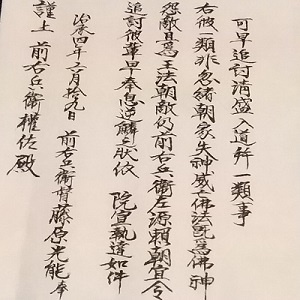 可早追討清盛入道并一類事
右彼一類非忽緒朝家失神威亡佛法既為佛神
怨敵且為王法朝敵仍前右兵衛左源頼朝宜令
追討彼輩早奉息逆鱗之状依 院宣執達如件
治承四年月拾九日 前右兵衛督藤原光能 奉
謹上 前右兵衛權佐殿